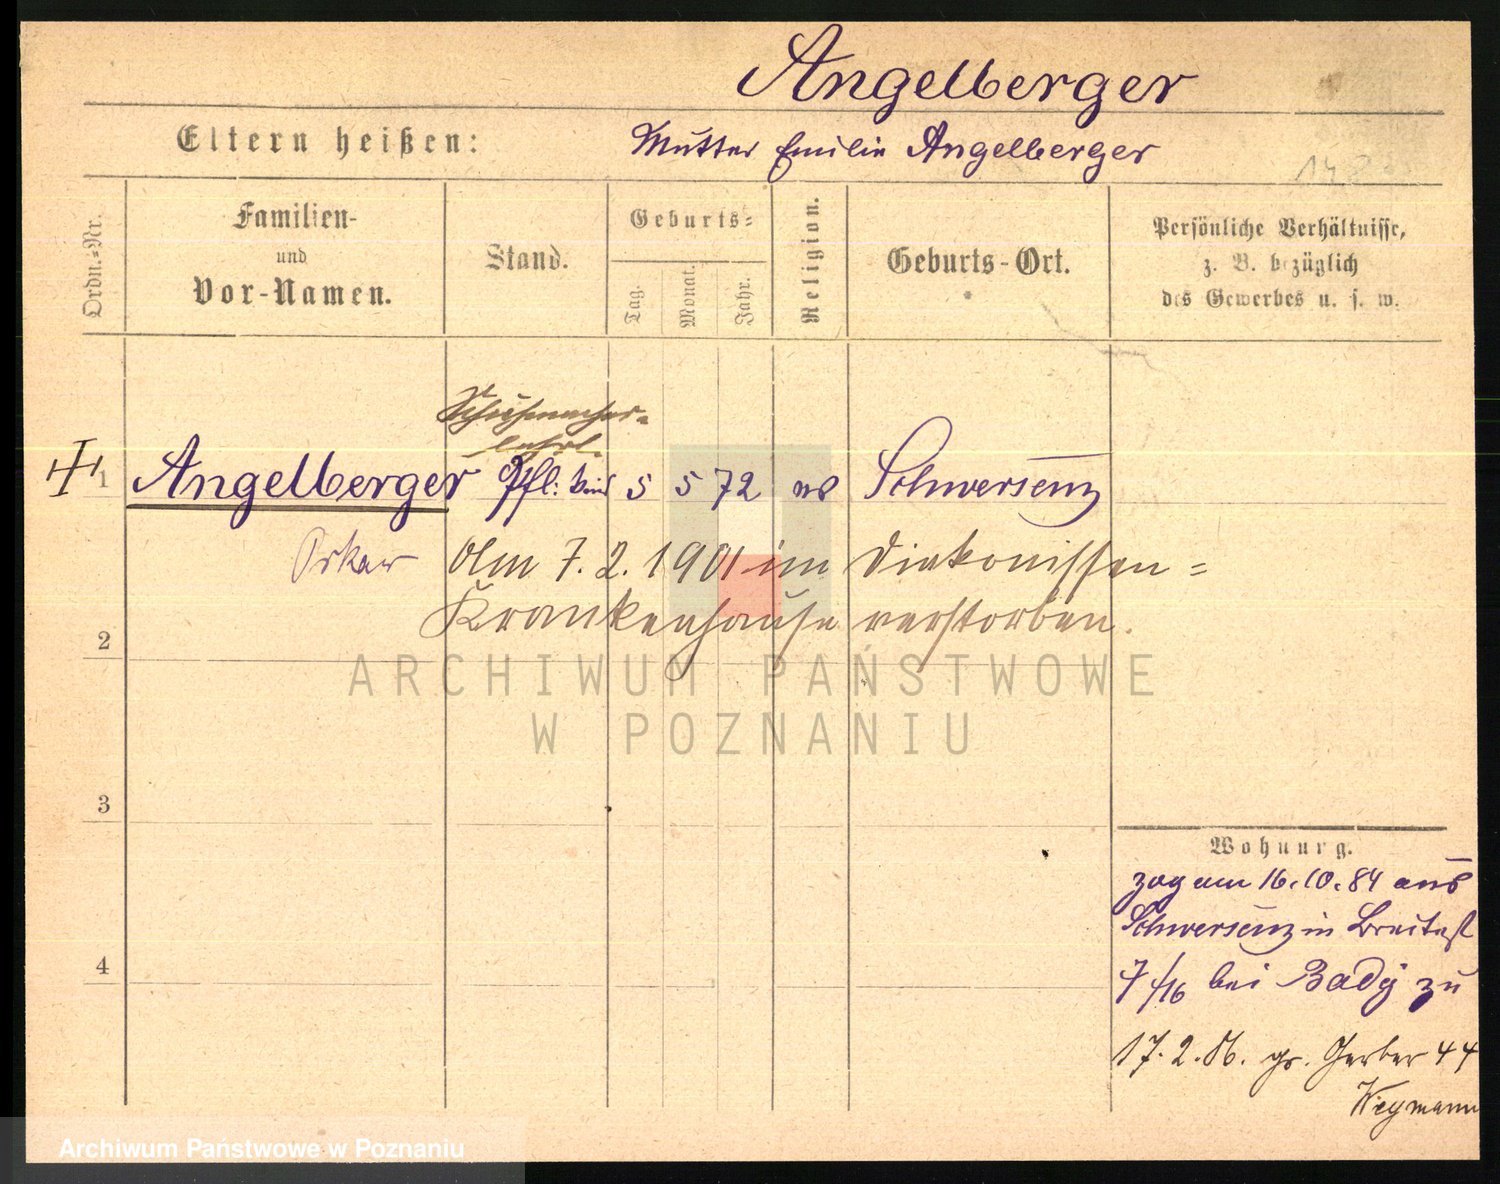 Angelberger
Eltern heißen: Mutter Emilie Angelberger
148
Ordn.=Nr.
Familien-
und
Vor-Namen.
Stand.
Geburts=
Tag.
Monat.
Jahr.
Religion.
Geburts-Ort.
Persönliche Verhältnisse,
z. B. bezüglich
des Gewerbes u. s. w.
Schuhmacher-
lehrl.
1 Angelberger Pfl: Kind 5 5 72 Schwersenz
Oskar Am 7. 2. 1901 im Diakonissen=
Krankenhause verstorben.
2
3
4
Wohnung.
zog am 16.10.84 aus
Schwersenz in Breitestr
7/16 bei Bady zu
17.2.86. gr. Gerber 44
Wegmann
ARCHIWUM PAŃSTWOWE
W POZNANIU
Archiwum Państwowe w Poznaniu